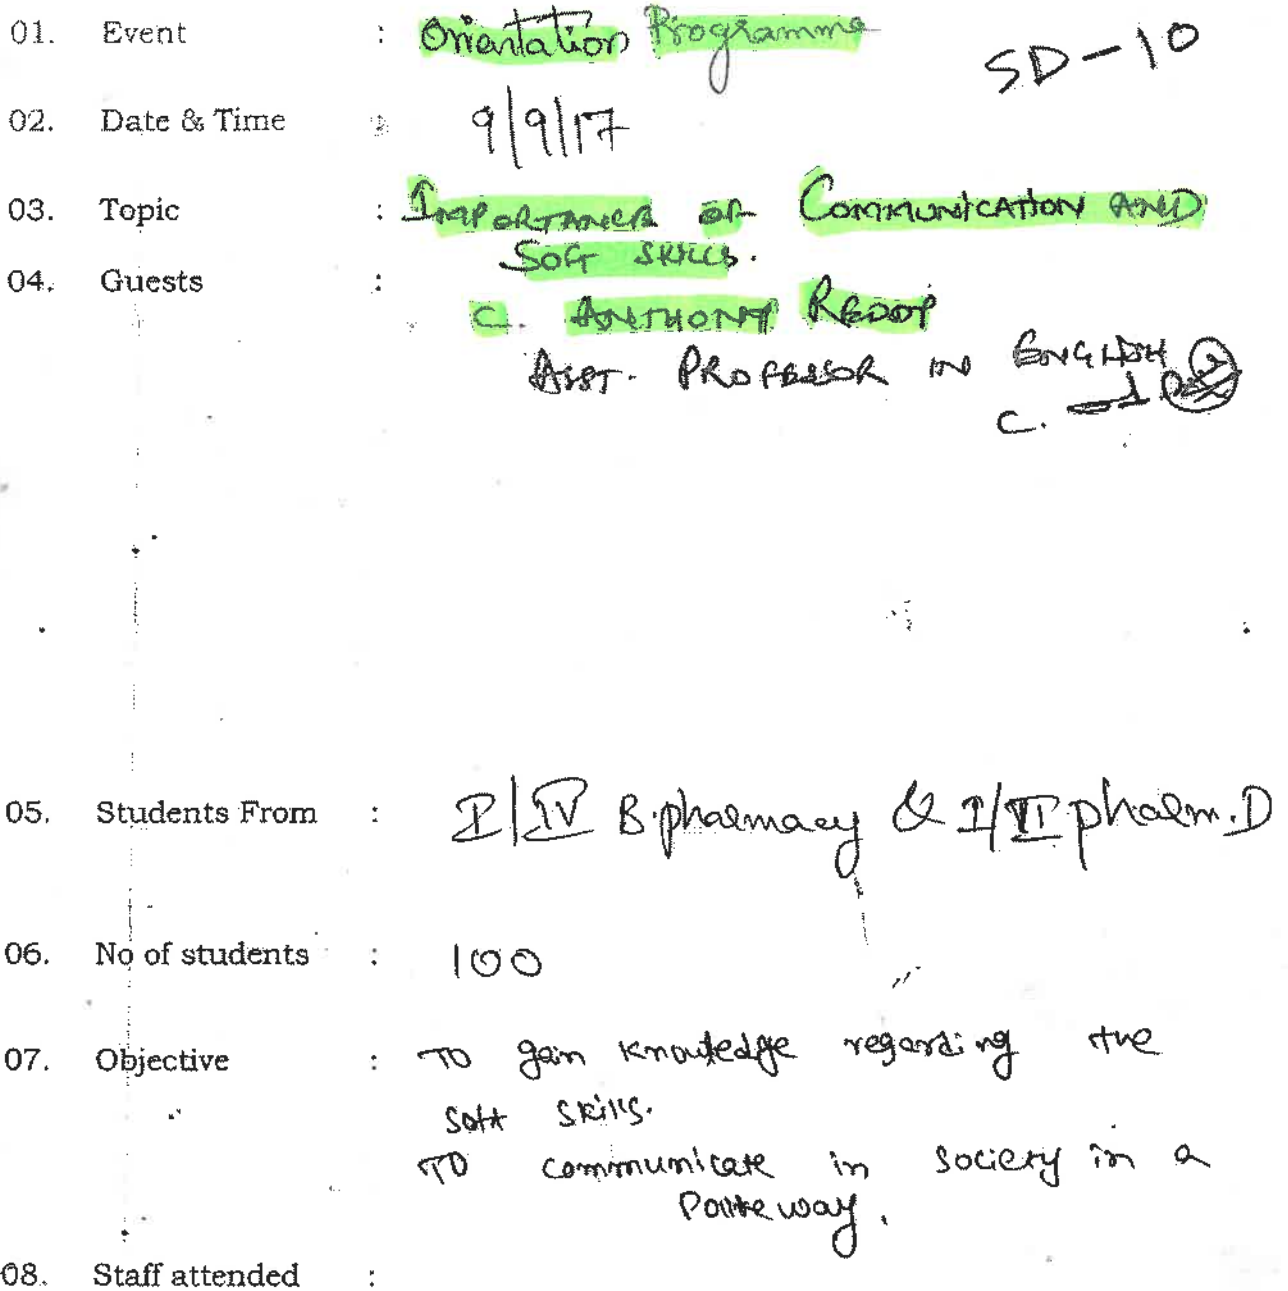 01. Event : Orientation Programme
SD-10
02. Date & Time : 9/9/17
03. Topic : IMPORTANCE OF COMMUNICATION AND
SOFT SKILLS.
04. Guests :
C. ANTHONY REDDY
ASST. PROFESSOR IN ENGLISH
C.
05. Students From : I/IV B.pharmacy & I/VI pharm.D
06. No of students : 100
07. Objective : TO gain knowledge regarding the
soft skills.
TO communicate in society in a
Polite way.
08. Staff attended :